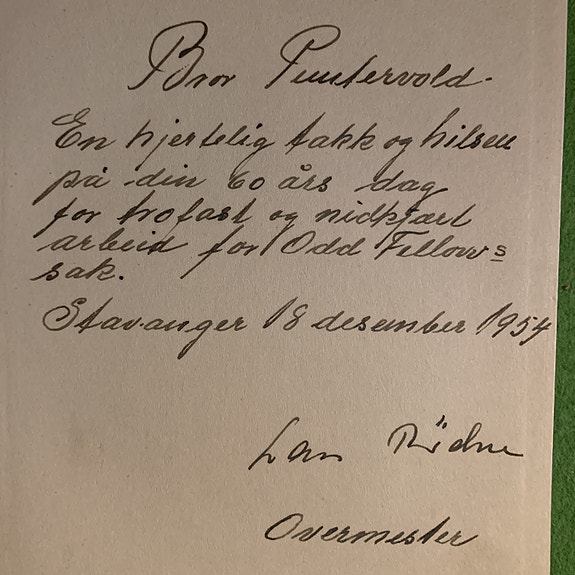 Bror Puntervold.
En hjertelig takk og hilsen
på din 60 års dag
for trofast og nidkjært
arbeid for Odd Fellows
sak.
Stavanger 18 desember 1954
Overmester